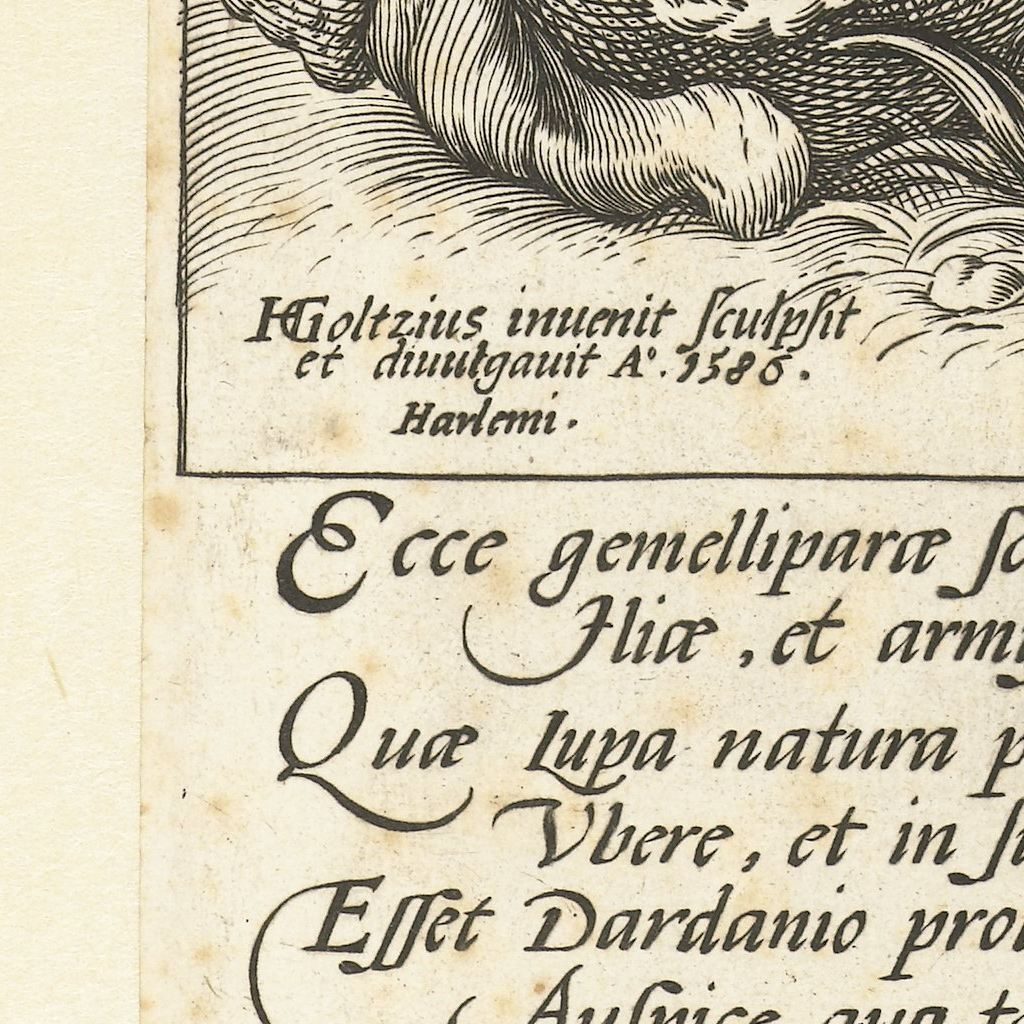 HGoltzius inuenit ſculpſit
et diuulgauit A°. 1586.
Harlemi.
Ecce gemelliparæ
Iliæ, et
Quæ Lupa natura
Vbere, et in
Eſſet Dardanio
Auſpice, qua